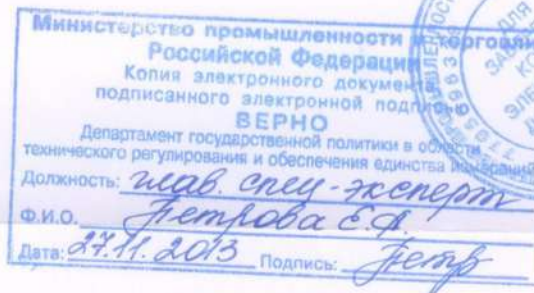 Министерство промышленности и торговли
Российской Федерации
Копия электронного документа
подписанного электронной подписью
ВЕРНО
Департамент государственной политики в области
технического регулирования и обеспечения единства измерений
Должность: глав. спец-эксперт
Ф.И.О. Петрова Е.А.
Дата: 27.11.2013 Подпись: Петр
ДЛЯ